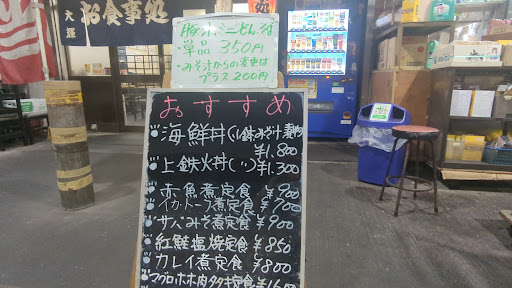 お食事処
大輝
処
・単品 350円
・みそ汁からの変更は
プラス200円
おすすめ
海鮮丼
¥1,800
上鉄火丼(〃)
¥1,300
赤魚煮定食 ¥900
イカ・トーフ煮定食 ¥700
サバみそ煮定食 ¥900
紅鮭塩焼定食 ¥850
カレイ煮定食 ¥800
マグロホホ肉タタキ定食